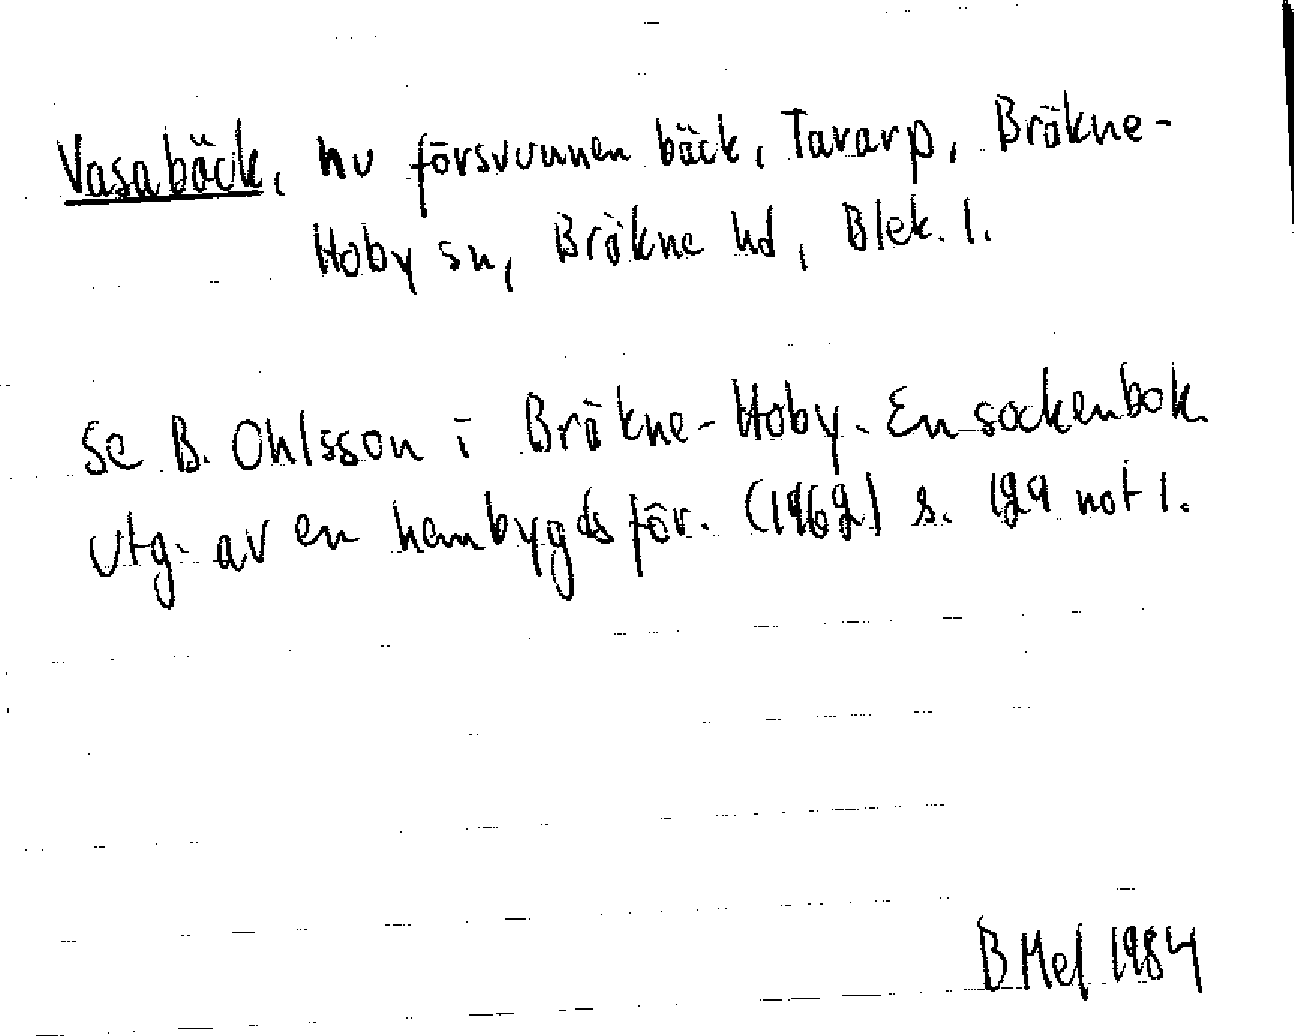 Vasabäck, nu försvunnen bäck, Tararp, Bräkne-
Hoby sn, Bräkne hd, Blek. l.
Se B. Ohlsson i Bräkne-Hoby. En sockenbok
utg. av en hembygdsför. (1962) s. 129 not 1.
B Mel 1984